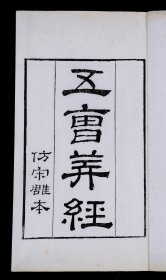 五曹筭經
仿宋雕本